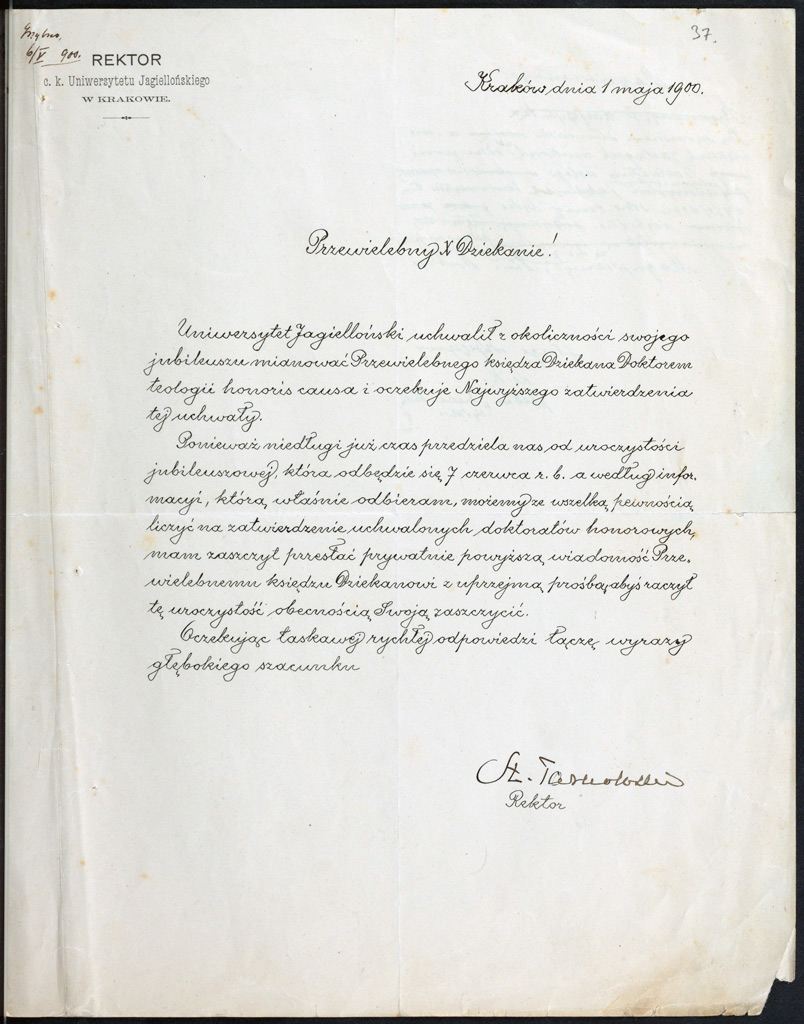 6/V 900.
37.
REKTOR
c. k. Uniwersytetu Jagiellońskiego
W KRAKOWIE.
Kraków dnia 1 maja 1900.
Przewielebny X Dziekanie!
Uniwersytet Jagielloński uchwalił z okoliczności swojego
jubileuszu mianować Przewielebnego księdza Dziekana Doktorem
teologii honoris causa i oczekuje Najwyższego zatwierdzenia
tej uchwały.
Ponieważ niedługi już czas przedziela nas od uroczystości
jubileuszowej, która odbędzie się 7 czerwca r. b. a według infor-
macyi, którą właśnie odbieram, możemy ze wszelką pewnością
liczyć na zatwierdzenie uchwalonych doktoratów honorowych,
mam zaszczyt przesłać prywatnie powyższą wiadomość Prze-
wielebnemu księdzu Dziekanowi z uprzejmą prośbą, abyś raczył
tę uroczystość obecnością Swoją zaszczycić.
Oczekując łaskawej rychłej odpowiedzi łączę wyrazy
głębokiego szacunku
St. Tarnowski
Rektor